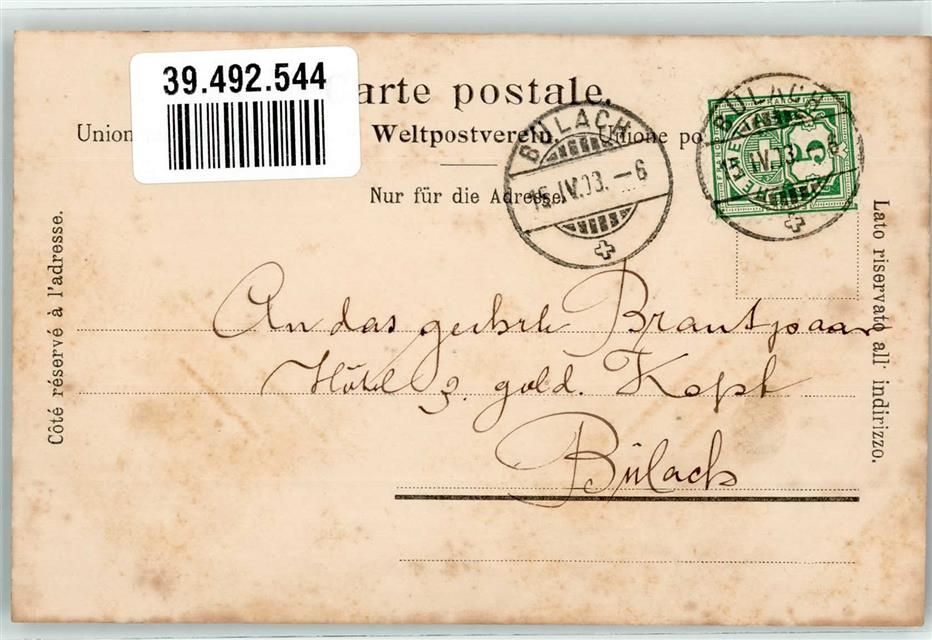 39.492.544
arte postale.
Union Weltpostverein. Unione po
Nur für die Adresse.
BÜLACH
15.IV.03.-6
BÜLACH
15.IV.03.-6
5
Côté réservé à l'adresse.
Lato riservato all' indirizzo.
An das geehrte Brautpaar
Hôtel z. gold. Kopf
Bülach